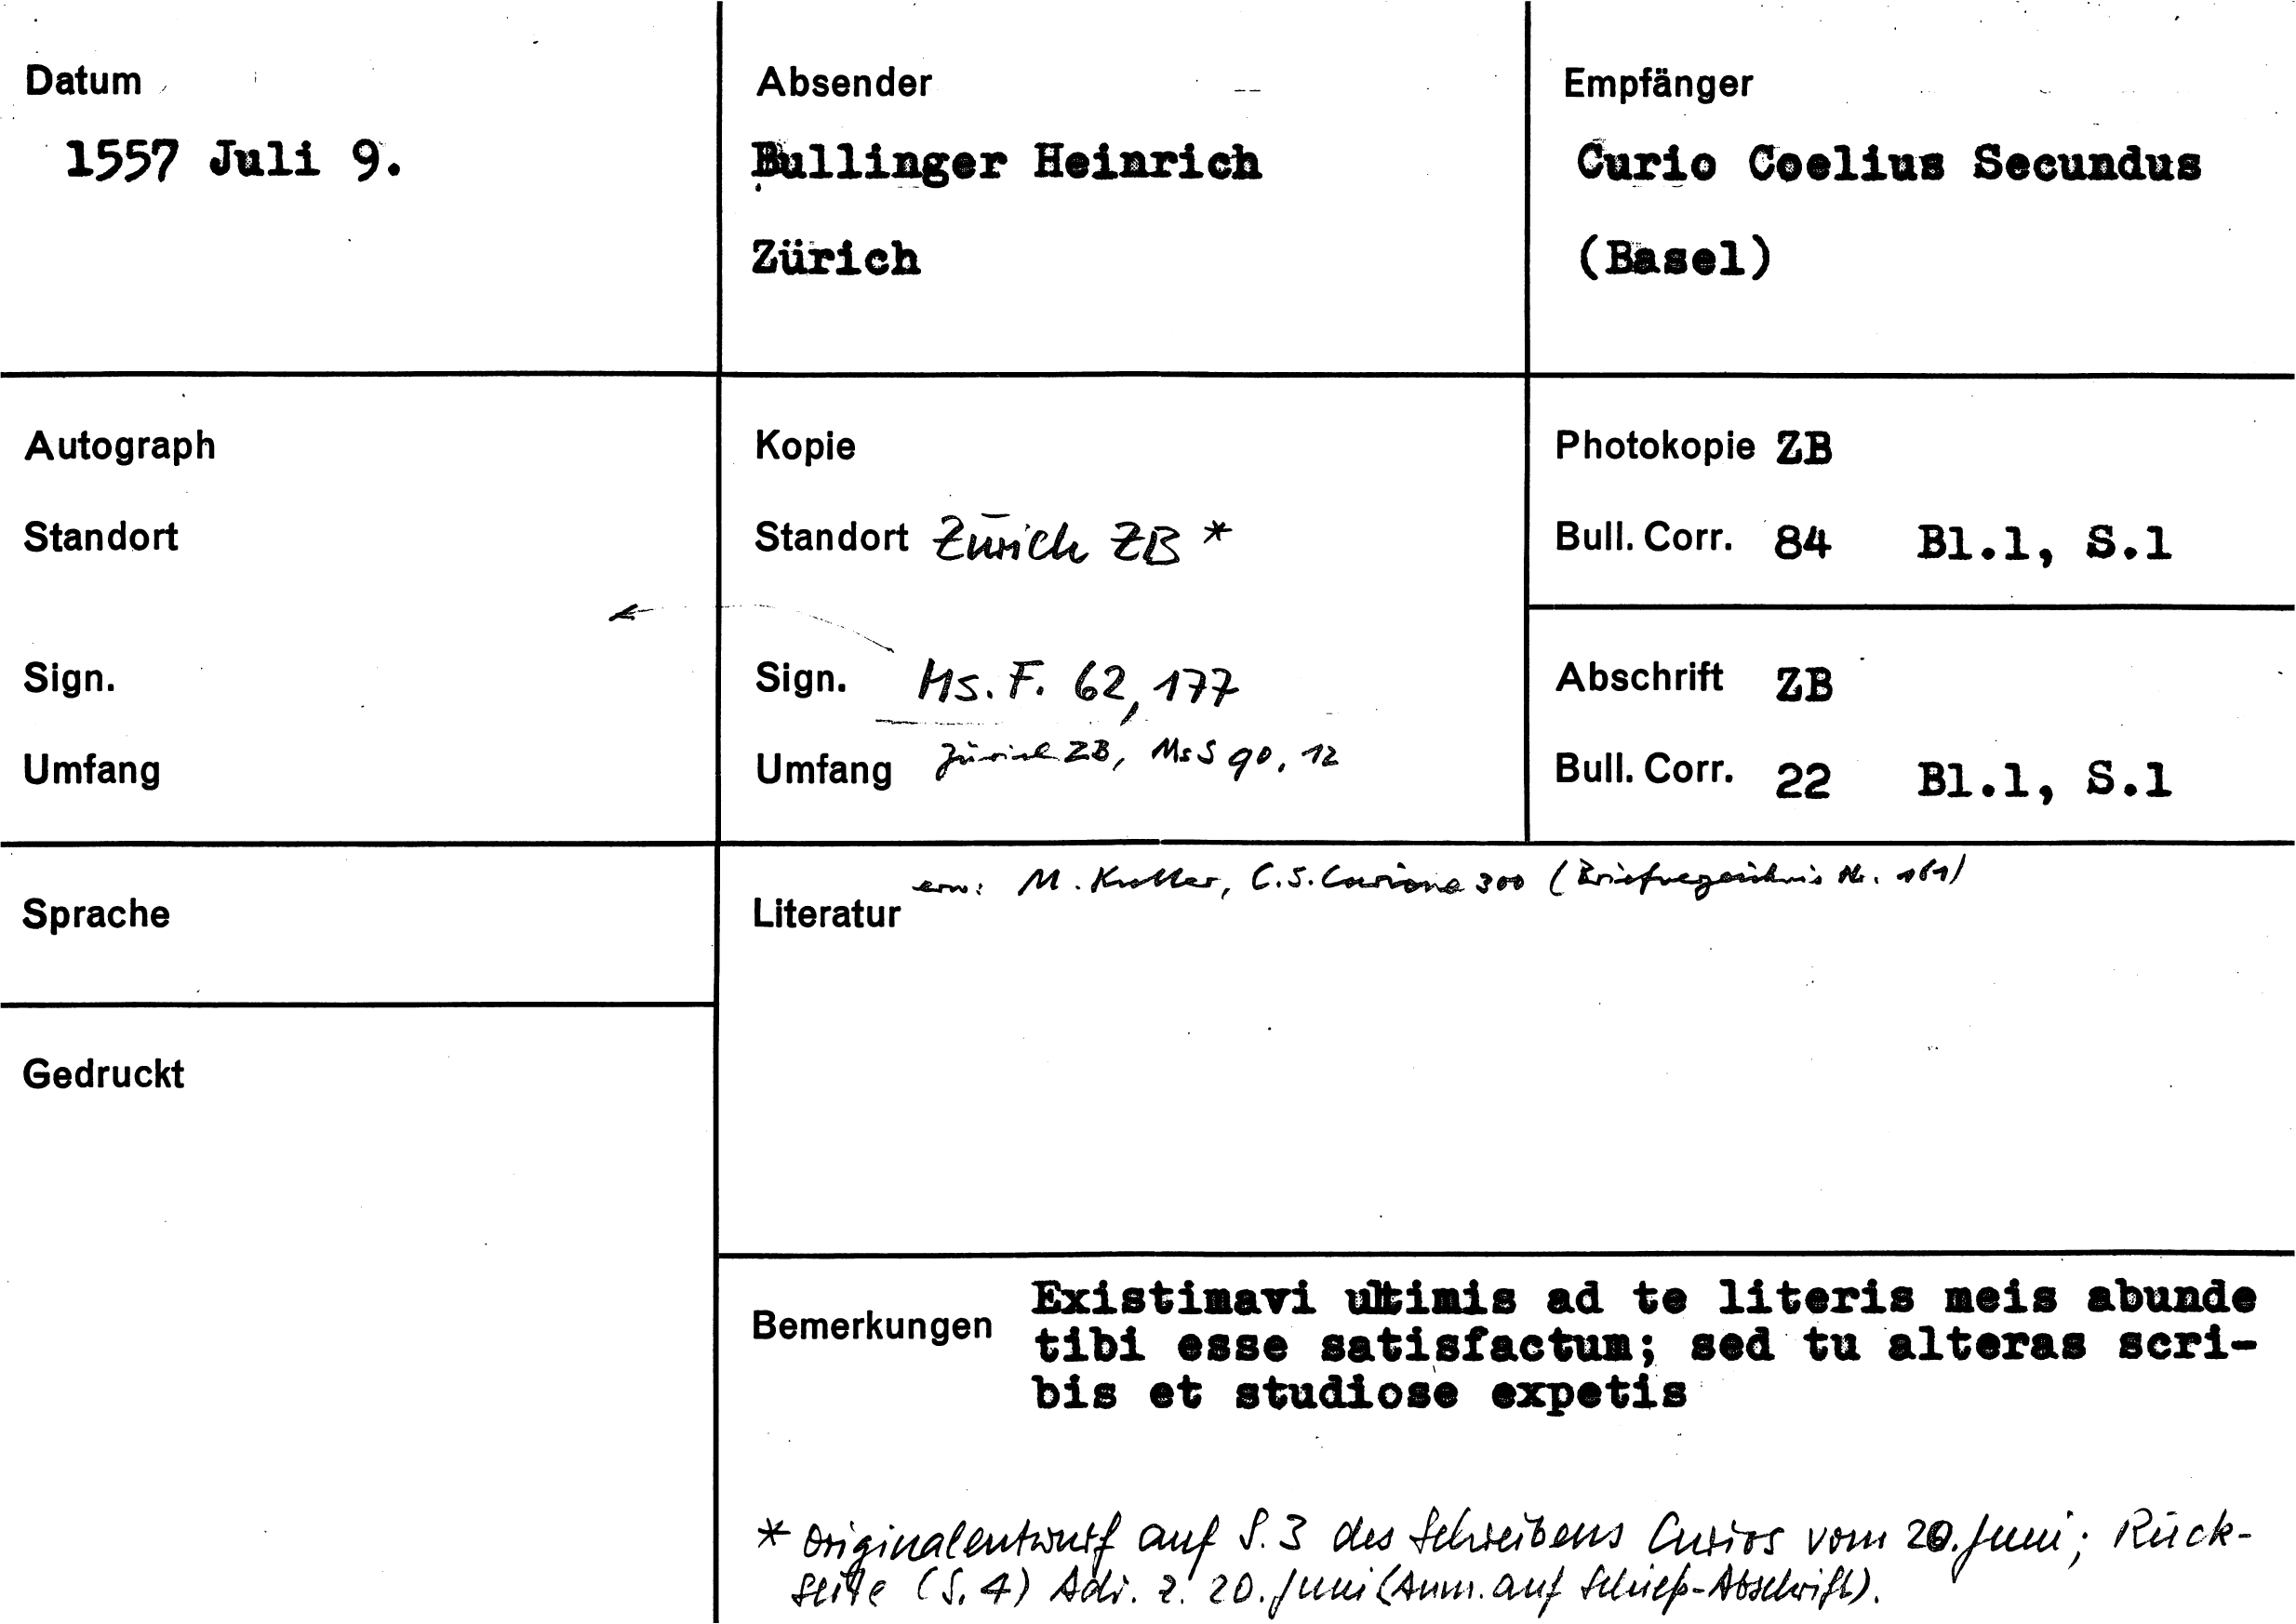 Datum
1557 Juli 9.
Absender
Bullinger Heinrich
Zürich
Empfänger
Curio Coelius Secundus
(Basel)
Autograph
Standort
Sign.
Umfang
Kopie
Standort Zürich ZB *
Sign. Ms. F. 62, 177
Umfang Zürich ZB, Ms S 90, 12
Photokopie ZB
Bull. Corr. 84 Bl.1, S.1
Abschrift ZB
Bull. Corr. 22 Bl.1, S.1
Sprache
Gedruckt
erw: M. Kutter, C.S. Curione 300 (Briefverzeichnis Nr. 161)
Literatur
Bemerkungen
Existimavi ultimis ad te literis meis abunde
tibi esse satisfactum; sed tu alteras scri-
bis et studiose expetis
* Originalentwurf auf S. 3 des Schreibens Curios vom 20. Juni; Rück-
seite (S. 4) Adr. z. 20. Juni (Anm. auf Schieß-Abschrift).